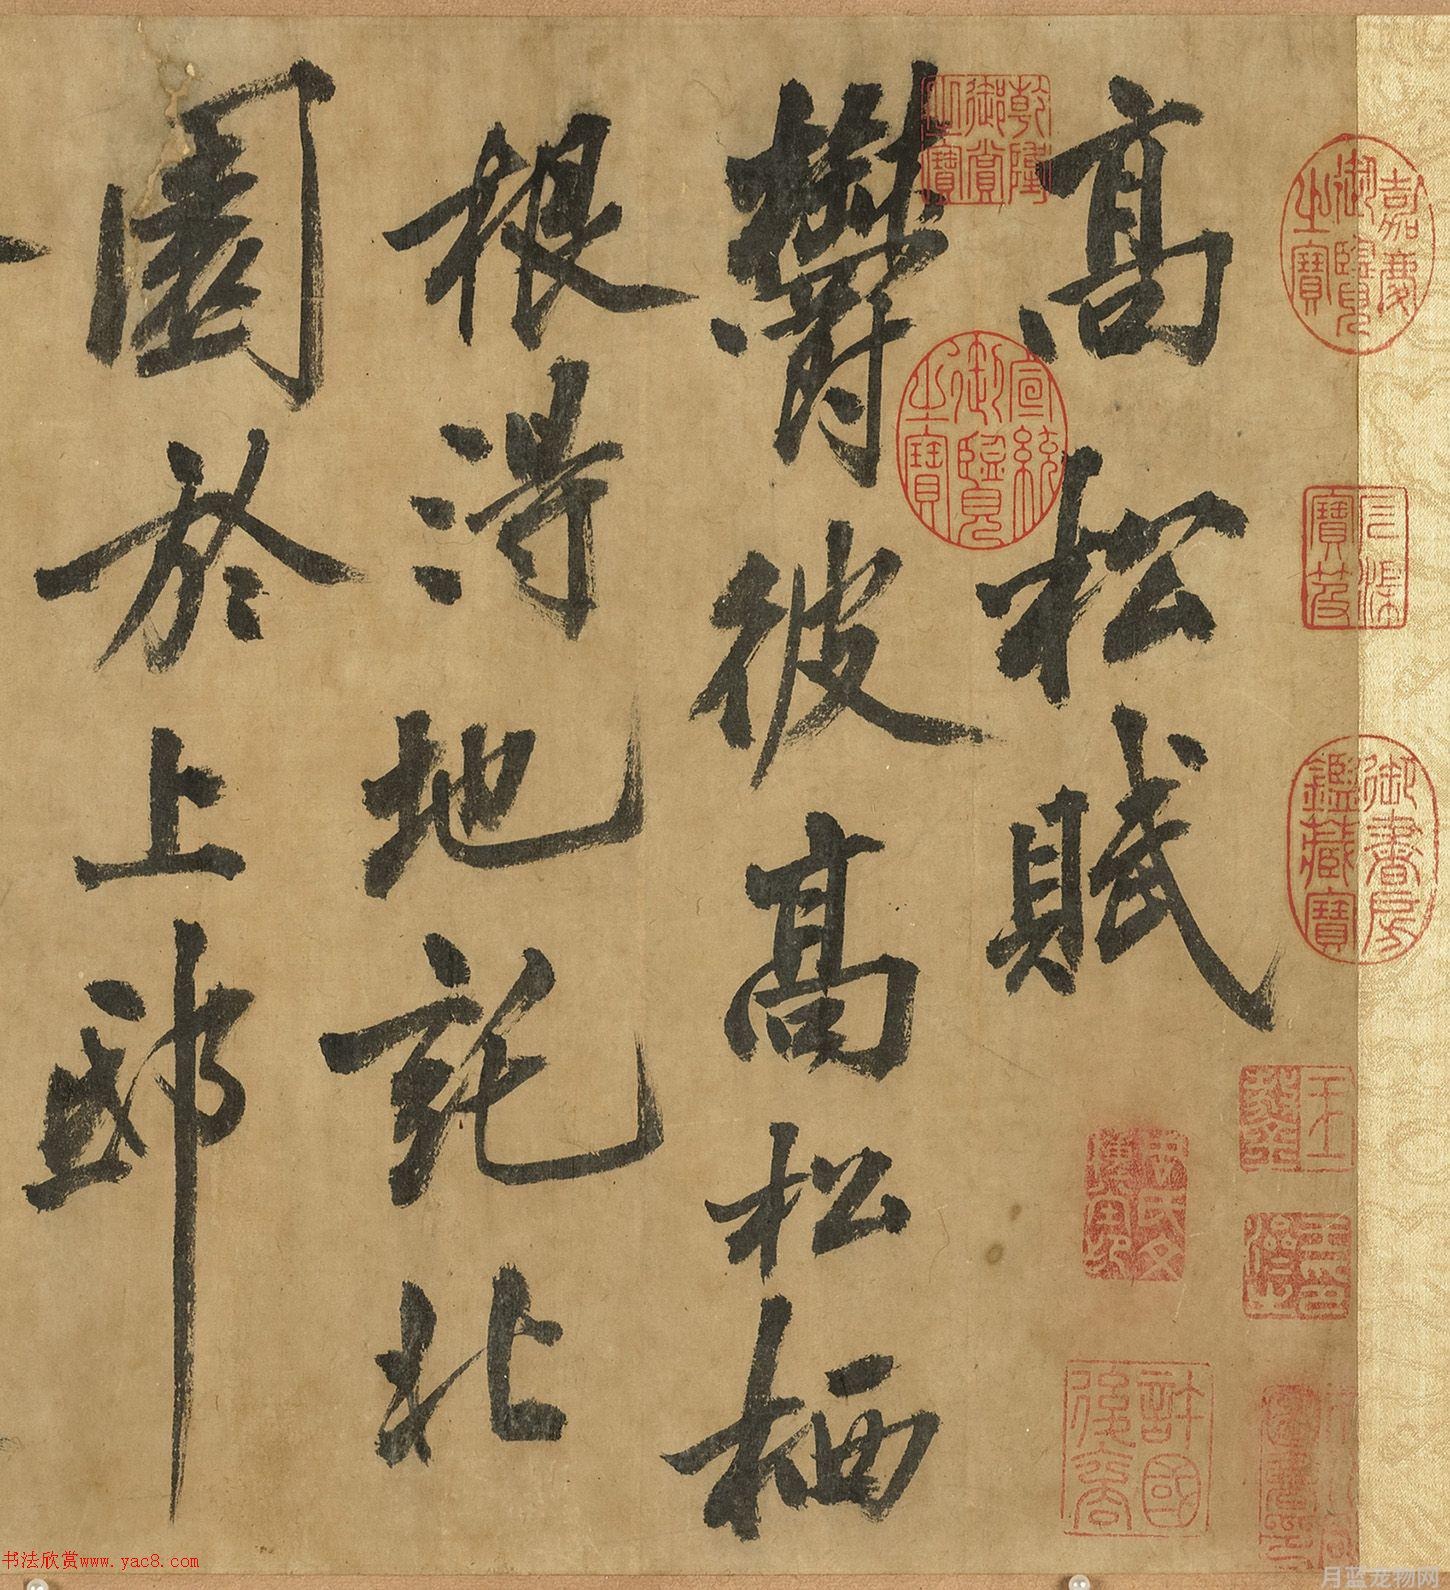 高松賦
鬱彼高松栖
根得地託北
園於上邸
嘉慶御覽之寶
乾隆御賞之寶
宣統御覽之寶
御書房鑑藏寶
許國後裔
书法欣赏www.yac8.com
月蓝宠物网